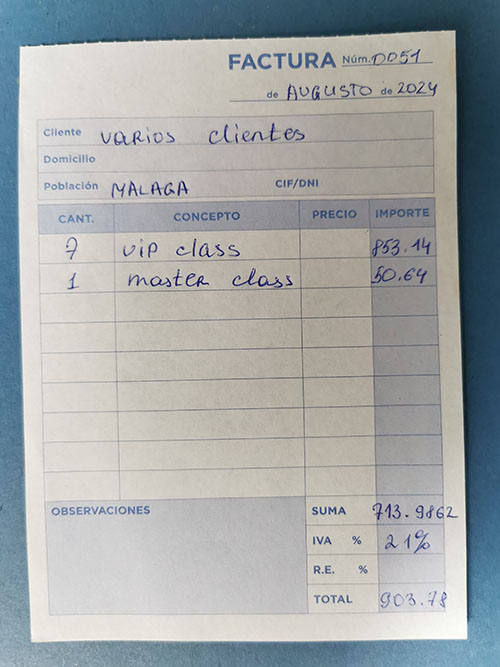 FACTURA Núm. 0051
de AUGUSTO de 2024
Cliente varios clientes
Domicilio
Población MALAGA CIF/DNI
CANT. CONCEPTO PRECIO IMPORTE
7 vip class 853.14
1 master class 50.64
OBSERVACIONES SUMA 713.9862
IVA % 21%
R.E. %
TOTAL 903.78